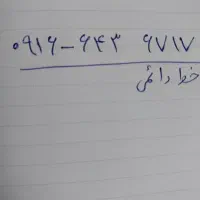 ۰۹۱۶-۶۴۳ ۶۷۱۷
خط دائمی